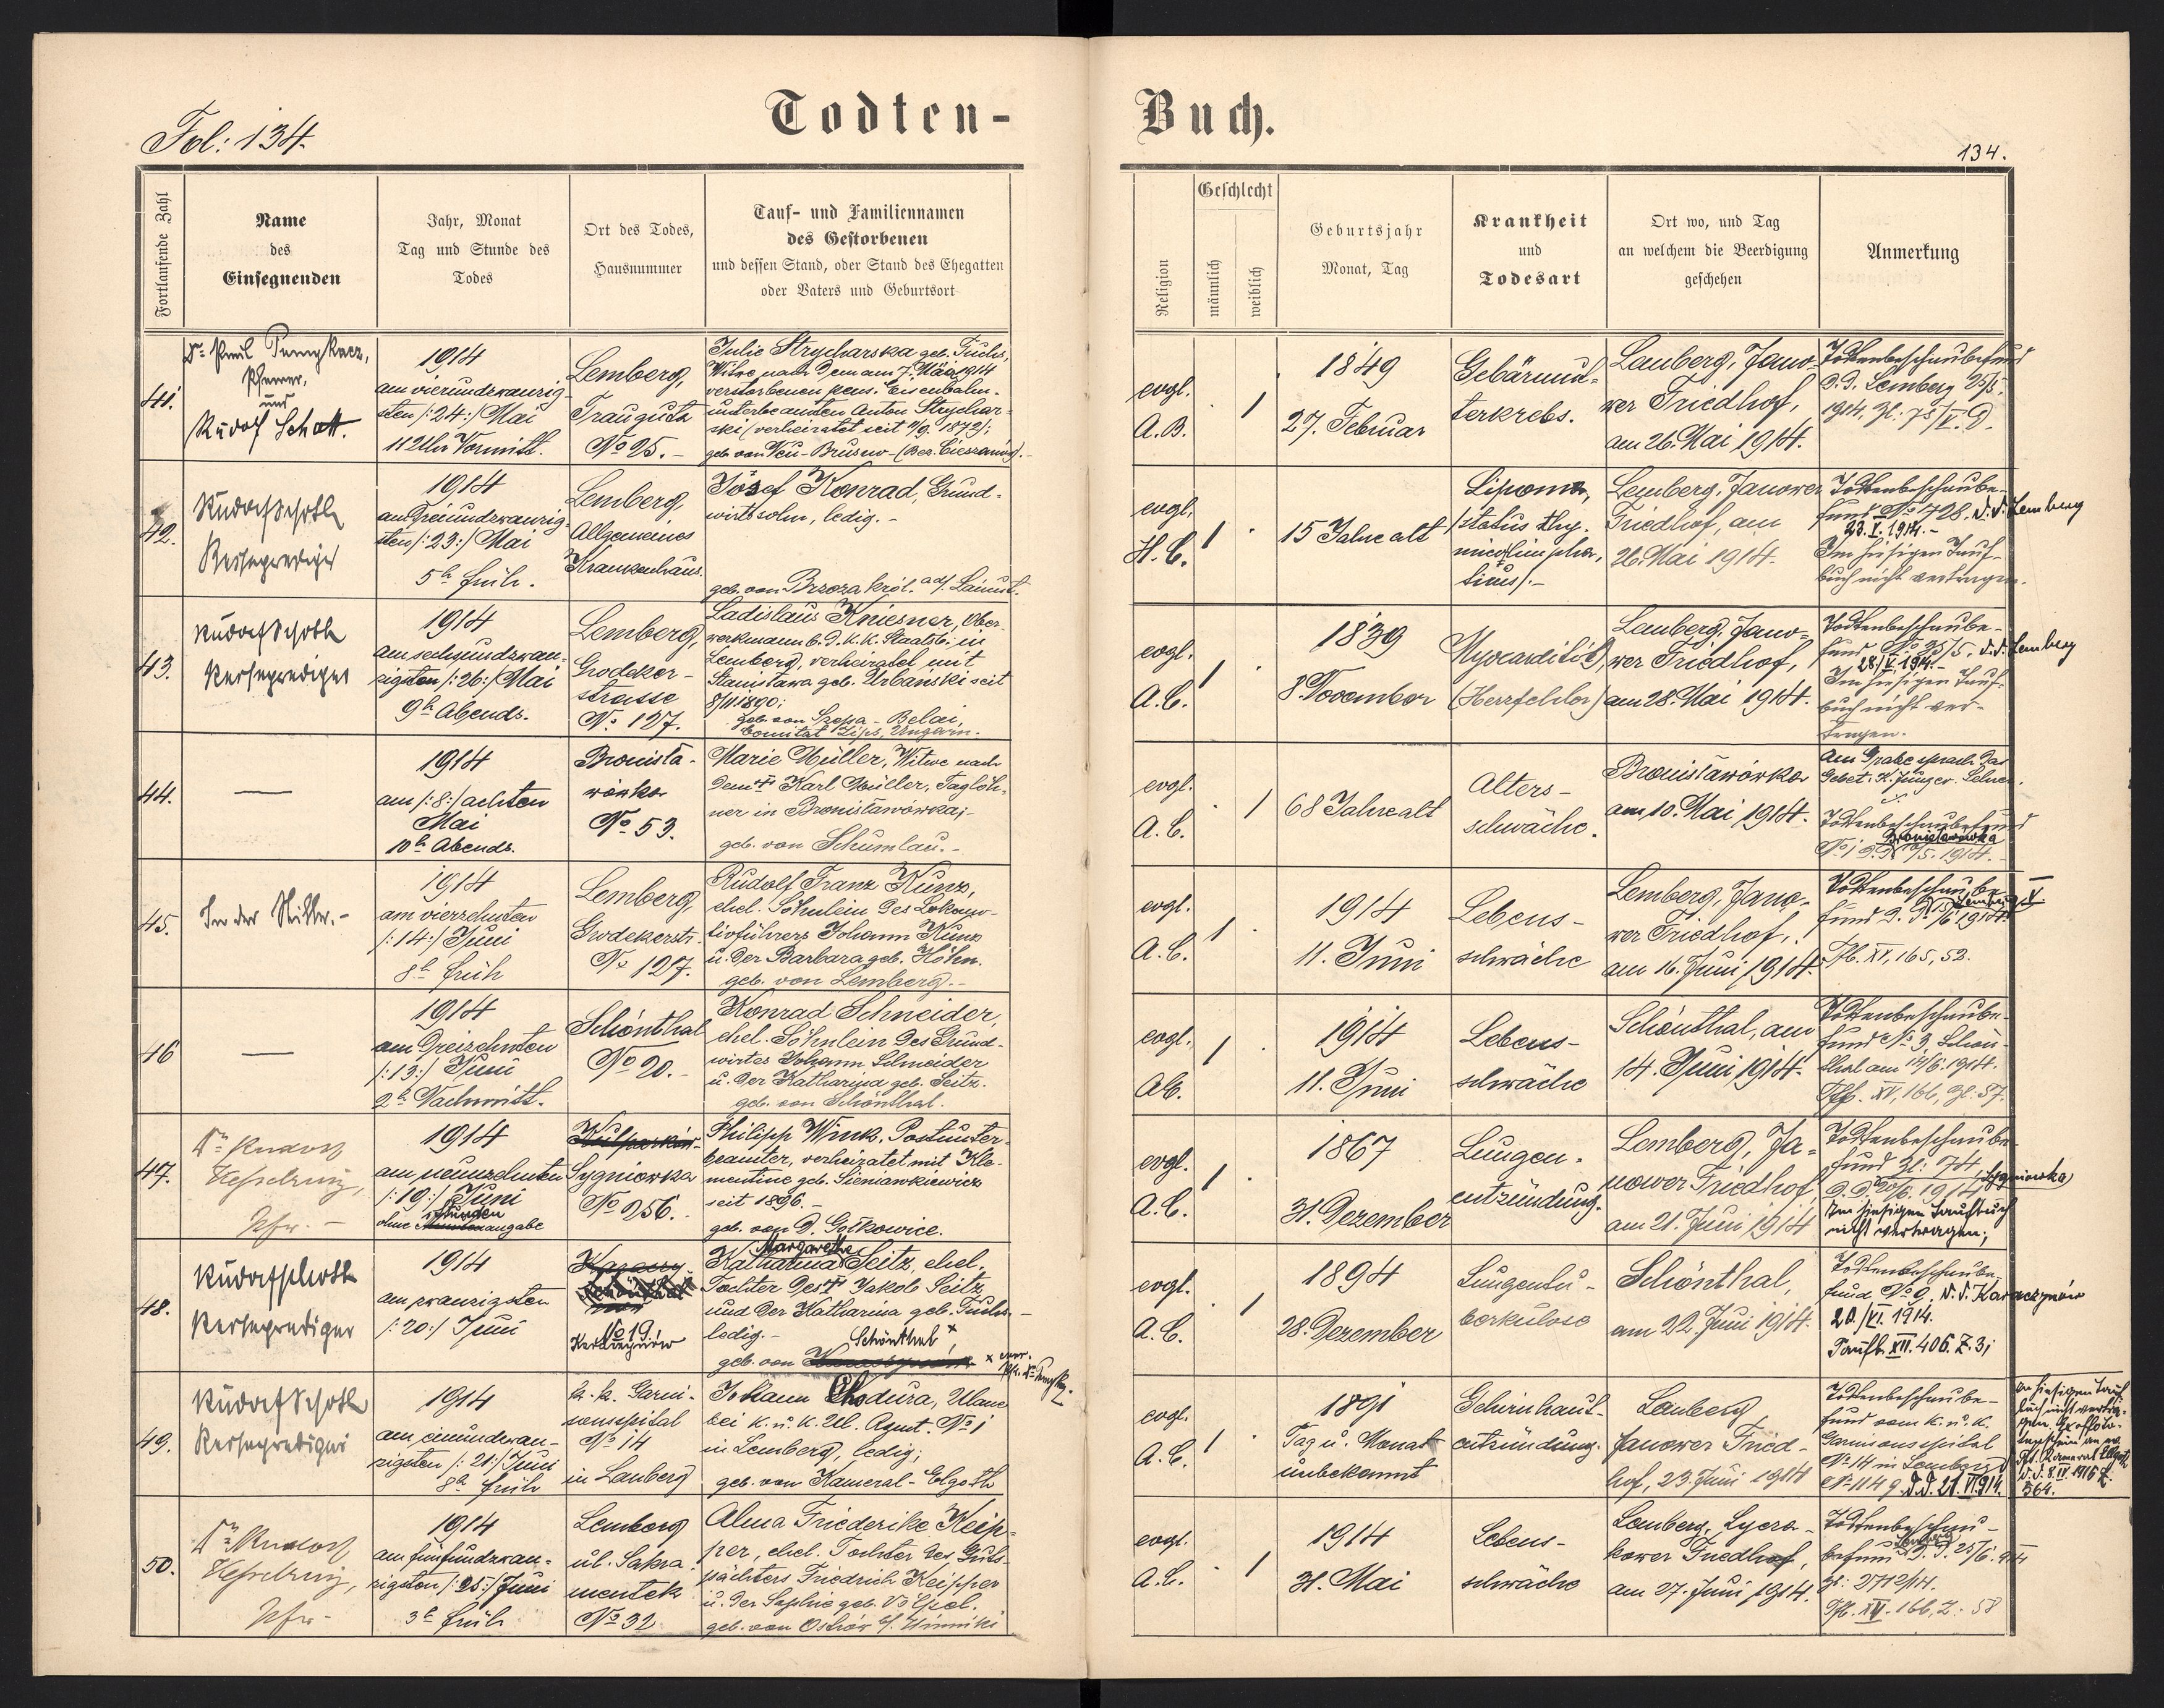 Fol: 134.
Todten-
Buch.
134.
Fortlaufende Zahl
Name
des
Einsegnenden
Jahr, Monat
Tag und Stunde des
Todes
Ort des Todes,
Hausnummer
Tauf- und Familiennamen
des Gestorbenen
und dessen Stand, oder Stand des Ehegatten
oder Vaters und Geburtsort
Religion
Geschlecht
männlich
weiblich
Geburtsjahr
Monat, Tag
Krankheit
und
Todesart
Ort wo, und Tag
an welchem die Beerdigung
geschehen
Anmerkung
41.
Pfarrer,
und
Rudolf Schott.
1914
am vierundzwanzig-
sten /:24:/ Mai
11 Uhr Vormitt.
Lemberg,
Traugutta
No 25.-
Julie Strycharska geb. Fuchs,
Witwe nach dem am 7. März 1914
verstorbenen pens. Eisenbahn-
unterbeamten Anton Strychar-
ski (verheiratet seit 1872);
geb. von Neu-Brusno-(Bez. Cieszanów).-
evgl.
A.B.
1
1849
27. Februar
Gebärmut-
terkrebs.
Lemberg, Jano-
wer Friedhof,
am 26. Mai 1914.
Todtenbeschaubefund
d.d. Lemberg 25/5.
1914, Zl. 75/V. D.
42.
Rudolf Schott
Reiseprediger
1914
am dreiundzwanzig-
sten /:23:/ Mai
5h früh.
Lemberg,
Allgemeines
Krankenhaus.
Józef Konrad, Grund-
wirtssohn, ledig.-
geb. von Brzoza król. ad/ Lancut.
evgl.
H.C.
1
15 Jahre alt
Lipoma,
/status thy-
micolimpha-
ticus/.-
Lemberg, Janower
Friedhof, am
26. Mai 1914.
Todtenbeschaube-
fund No 728. d.d. Lemberg
23. V. 1914.-
Im hiesigen Tauf-
buch nicht vertragen.
43.
Rudolf Schott
Reiseprediger
1914
am sechsundzwan-
zigsten /:26:/ Mai
9h Abends.
Lemberg,
Grodeker-
strasse
No 127.
Ladislaus Kniesner, Ober-
werkmann b. d. k.k. Staatsb. in
Lemberg, verheiratet mit
Stanisława geb. Urbanski seit
8/11 1890;
geb. von Szepa-Belai,
Comitat Zips, Ungarn.
evgl.
A.C.
1
1839
8. November
Myocarditis,
(Herzfehler)
Lemberg, Jano-
wer Friedhof,
am 28. Mai 1914.
Todtenbeschaube-
fund No 25/5. d.d. Lemberg
28/V 1914.-
Im hiesigen Tauf-
buch nicht ver-
tragen.
44.
1914
am /:8:/ achten
Mai
10h Abends.
Bronisła-
wówka
No 53.
Marie Müller, Witwe nach
dem † Karl Müller, Taglöh-
ner in Bronisławówka;-
geb. von Schumlau.-
evgl.
A.C.
1
68 Jahre alt
Alters-
schwäche.
Bronisławówka
am 10. Mai 1914.
Am Grabe sprach das
Gebet: K. Jünger. Lehrer.
Todtenbeschaubefund
Bronisławówka
45.
In der Stille.-
1914
am vierzehnten
/:14:/ Juni
8h früh
Lemberg,
Grodekerstr.
No 127.
Rudolf Franz Kunz,
ehel. Söhnlein des Lokomo-
tivführers Johann Kunz
u. der Barbara geb. Höhn.
geb. von Lemberg.-
evgl.
A.C.
1
1914
11. Juni
Lebens-
schwäche
Lemberg, Jano-
wer Friedhof,
am 16. Juni 1914.
Todtenbeschaube-
fund d. d. 15/6 1914.
Tfb. XV, 165, 52.
46
1914
am dreizehnten
/:13:/ Juni
2h Nachmitt.
Schönthal
No 20.-
Konrad Schneider,
ehel. Söhnlein des Grund-
wirtes Johann Schneider
u. der Katharina geb. Seitz.
geb. von Schönthal.
evgl.
AC.
1
1914
11. Juni
Lebens-
schwäche
Schönthal, am
14. Juni 1914.
Todtenbeschaube-
fund No 3, Schön-
thal am 14/6. 1914.
Tfb. XV, 166, Zl: 57.
47.
Dr Rudolf
Kesselring,
Pfr.-
1914
am neunzehnten
/:19:/ Juni
ohne Stundenangabe
Sygniowka
No 256.
Philipp Wink, Postunter-
beamter, verheiratet mit Kle-
mentine geb. Sieniawkiewicz
seit 1896.-
geb. von D. Gołkowice.
evgl.
A.C.
1
1867
31. Dezember
Lungen-
entzündung.
Lemberg, Ja-
nower Friedhof,
am 21. Juni 1914
Todtenbeschaube-
fund Zl: 74,
d. d. 20/6. 1914, Sygniowka)
Im hiesigen Taufbuch
nicht vertragen;
48.
Rudolf Schott
Reiseprediger
1914
am zwanzigsten
/:20:/ Juni
No 19.
Karaczynów
Margarethe
Katharina Seitz, ehel.
Tochter des † Jakob Seitz
und der Katharina geb. Fuchs-
ledig.-
Schönthal x
geb. von
evgl.
A.C.
1
1894
28. Dezember
Lungentu-
berkulose
Schönthal,
am 22. Juni 1914.
Todtenbeschaube-
fund No 9. d.d. Karaczynów
20./VI. 1914.
Taufb. XII. 406. Z. 3;
49.
Rudolf Schott
Reiseprediger
1914
am einundzwan-
zigsten /:21:/ Juni
8h früh
k.k. Garni-
sonsspital
No 14
in Lemberg
Johann Chodura, Ulane
bei k. u. k. Ul. Rgmt. No 1
in Lemberg, ledig;
geb. von Kameral-Elgoth
evgl.
A.C.
1
1891
Tag u. Monat
unbekannt
Gehirnhaut-
entzündung.
Lemberg
Janower Fried-
hof, 23. Juni 1914
Todtenbeschaube-
fund vom k. u. k.
Garnisonsspital
No 14 in Lemberg
No 1149 d.d. 21. VI. 914.
564.
50.
Dr Rudolf
Kesselring,
Pfr-
1914
am fünfundzwan-
zigsten /:25:/ Juni
3h früh
Lemberg
ul. Sakra-
mentek
No 32
Alma Friederike Keip-
per, ehel. Tochter des Guts-
pächters Friedrich Keipper
u. der Sophie geb.
geb. von Ostrów
evgl.
A.C.
1
1914
31. Mai
Lebens-
schwäche
Lemberg, Lycza-
kower Friedhof,
am 27. Juni 1914.
Todtenbeschau-
befund d. d. 25/6. 914
Zl: 2712/14.
Tfb. XV. 166, Z: 58